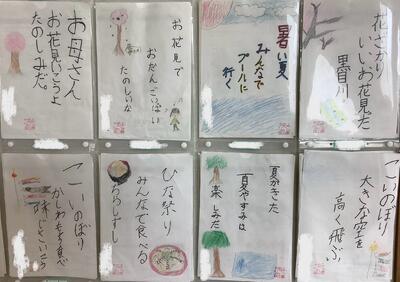 花ざかり
いいわ花見だ
黒目川
暑い夏
みんなで
プールに
行く
お花見で
おだんごいっぱい
たのしいな
お母さん
お花見いこうよ
たのしみだ。
こいのぼり
大きな空を
高く飛ぶ
夏がきた
夏やすみは
楽しみだ
ひな祭り
みんなで食べる
ちらしずし
こいのぼり
かしわもちを食べ